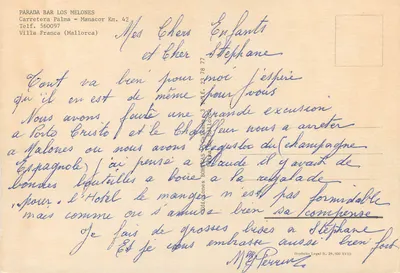 PARADA BAR LOS MELONES
Carretera Palma - Manacor Km. 42
Telf. 560097
Villa Franca (Mallorca)
Mes Chers Enfants
et Cher Stéphane
Tout va bien pour moi j'espère
qu'il en est de même pour vous
Nous avons faite une grande excursion
a Porto Cristo et le Chauffeur nous a arreter
a Malones ou nous avons degusto du champagne
Espagnole j'ai pensé a Claude il y avait de
bondes bouteilles a boire a la regalade
"pour" l'Hotel le manger n'est pas formidable
mais comme on s'amuse bien sa compense
Je fais de grosses bises a Stéphane
Et je vous embrasse aussi bien fort